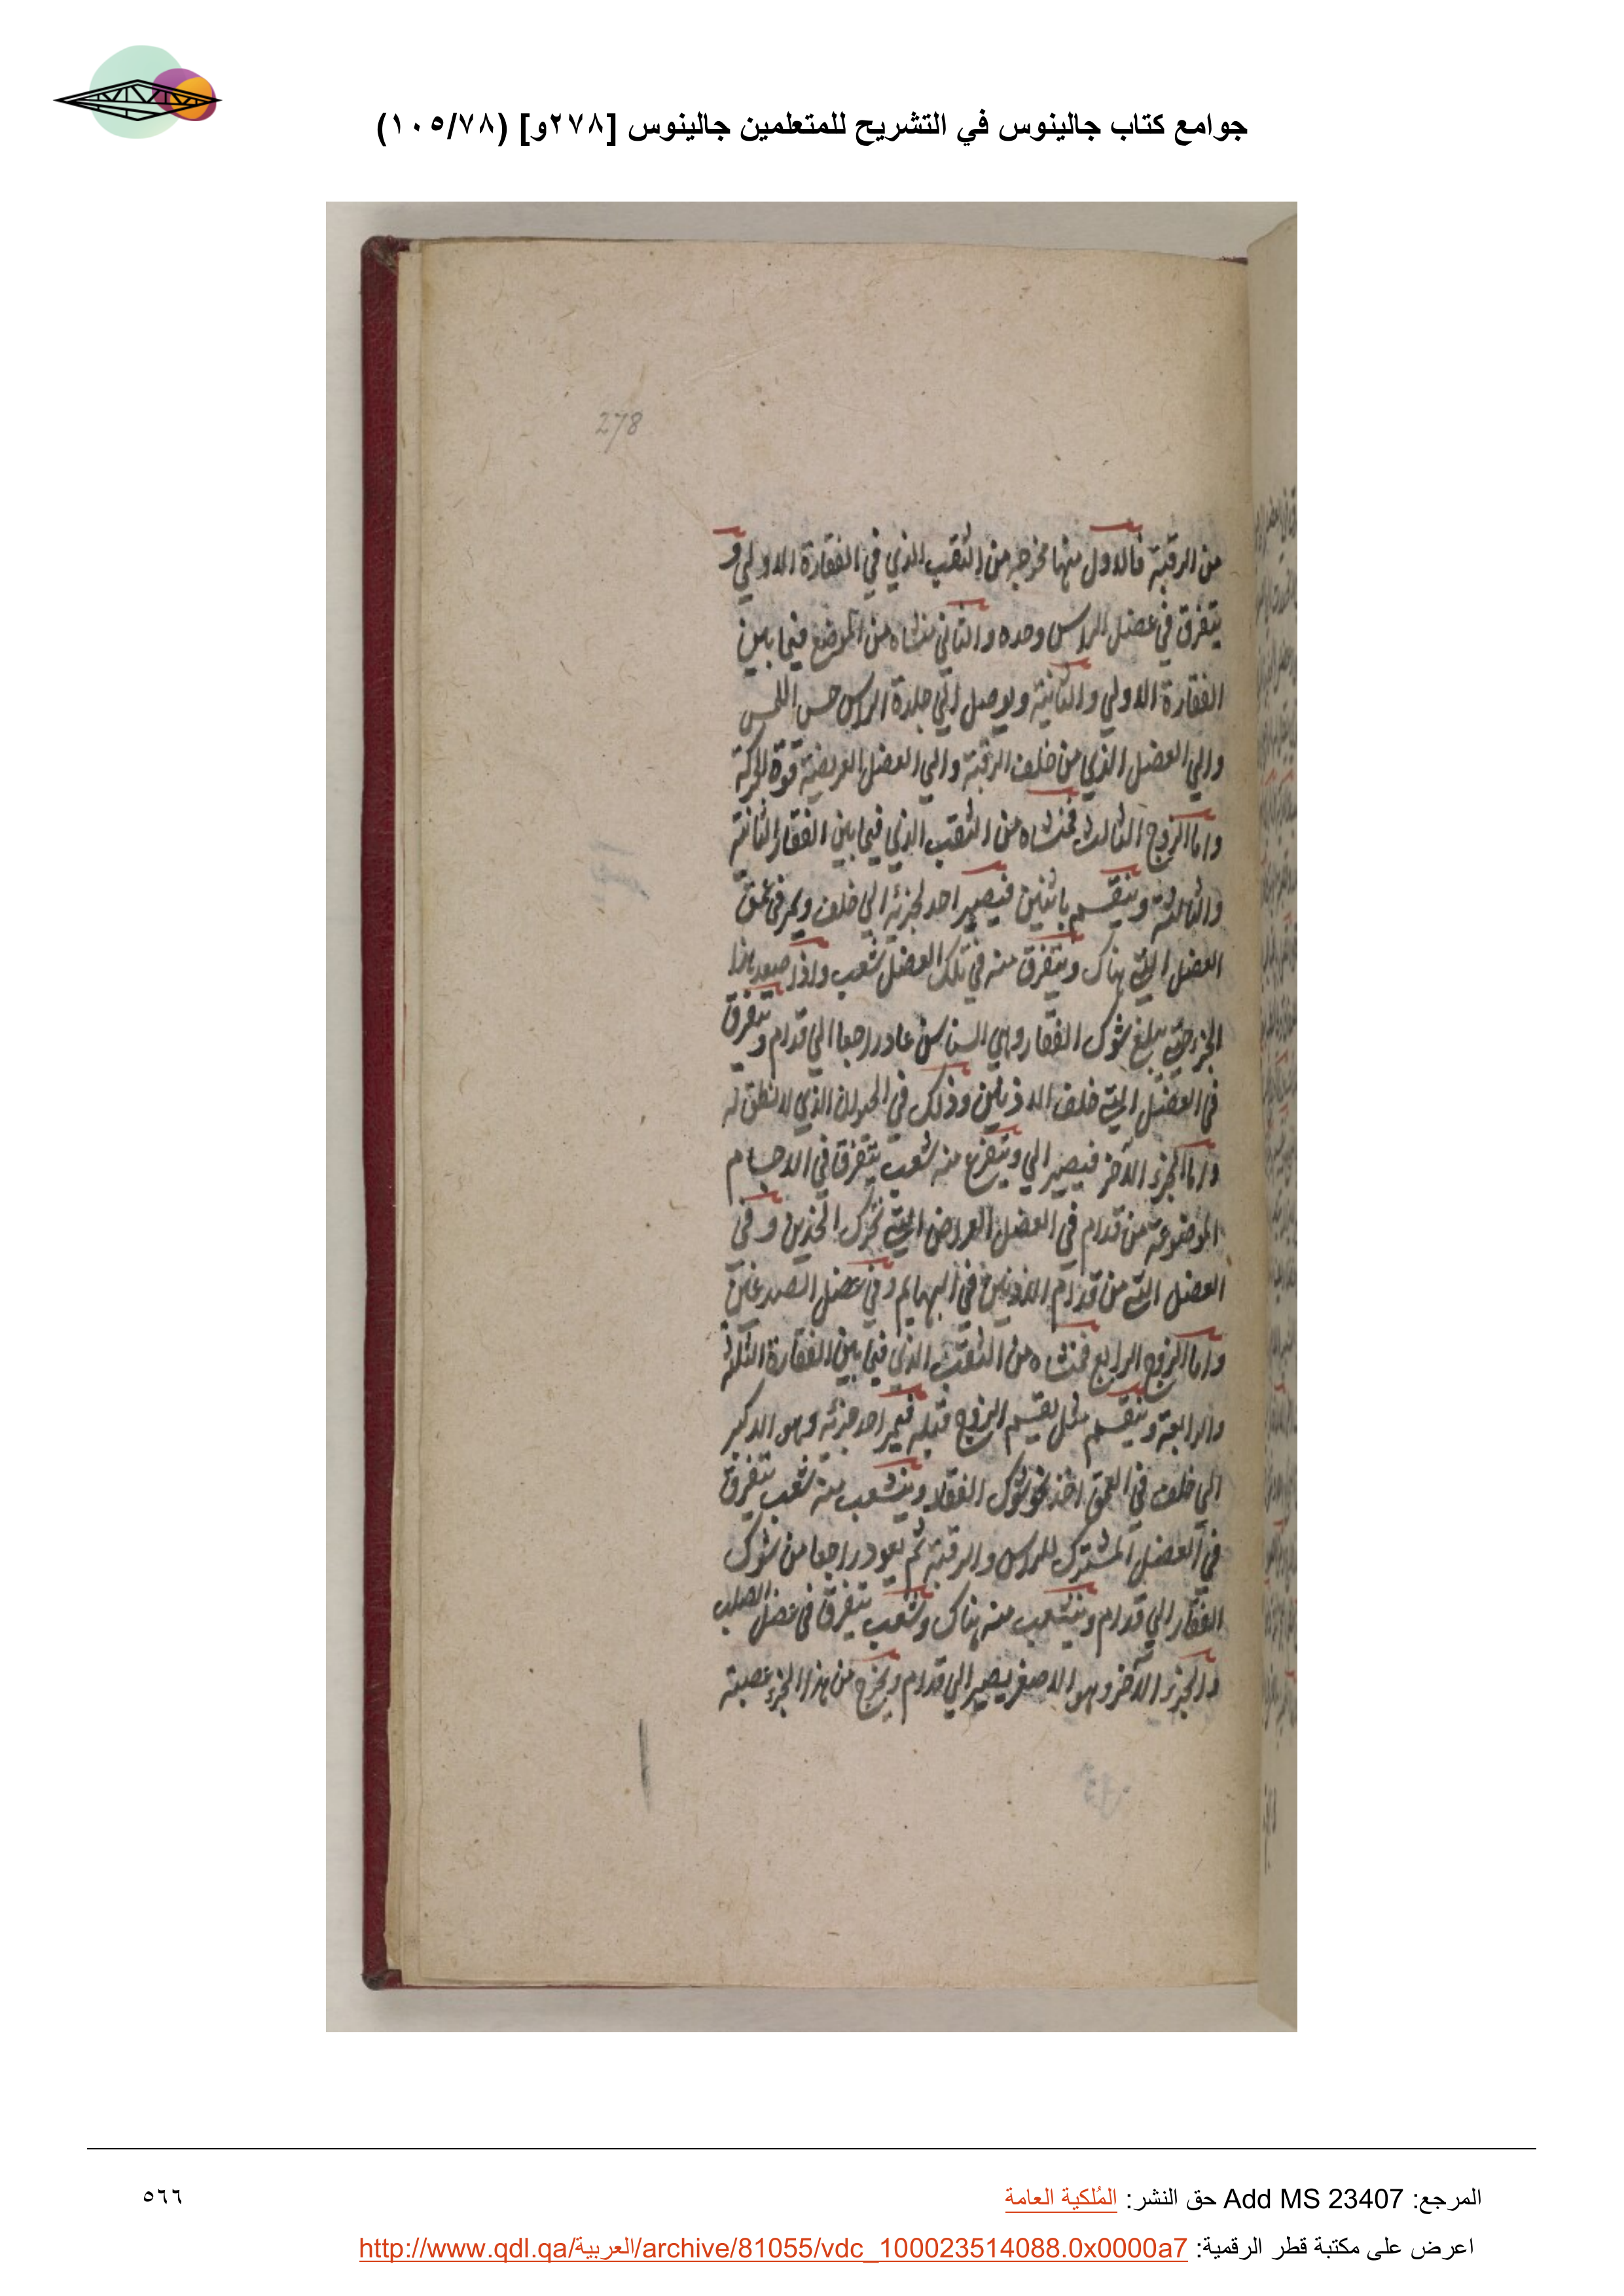 جوامع كتاب جالينوس في التشريح للمتعلمين جالينوس [٢٧٨و] (١٠٥/٧٨)
278
من الرقبة فالاول منها مخرجه من الثقب الذي في الفقارة الاولي و
يتفرق في عضل الراس وحده والثاني منشاه من الموضع فيما بين
الفقارة الاولي والثانية ويوصل الي جلدة الراس حس اللمس
والي العضل الذي من خلف الرقبة والي العضل العريضة قوة الحركة
واما الزوج الثالث فمنشاه من الثقب الذي فيما بين الفقار الثانية
والثالثة وينقسم باثنين فيصير احد جزئه الي خلف ويمر في عمق
العضل التي هناك ويتفرق منه في تلك العضل شعب واذا صعد هذا
الجزء حتي يبلغ شوك الفقار وهي السناسن عاد راجعا الي قدام ويتفرق
في العضل التي خلف الاذنين وذلك في الحيوان الذي لا نطق له
واما الجزء الآخر فيصير الي ويتفرع منه شعب يتفرق في الاجسام
الموضوعة من قدام في العضل العروض التي تحرك الخدين وفي
العضل التي من قدام الاذنين في البهايم وفي عضل الصدغين
واما الزوج الرابع فمنشاه من الثقب الذي فيما بين الفقارة الثلثة
والرابعة وينقسم مثل تقسيم الزوج قبله فيمر احد جزئه وهو الاكبر
الي خلف في العمق اخذ نحو شوك الفقار وينشعب منه شعب يتفرق
في العضل المشترك للراس والرقبة ثم يعود راجعا من شوك
الفقار الي قدام وينشعب منه هناك وشعب يتفرق في عضل الصلب
والجزء الآخر وهو الاصغر يصير الي قدام ويخرج من هذا الجزء عصبة
المرجع: Add MS 23407 حق النشر: المُلكية العامة
٥٦٦
اعرض على مكتبة قطر الرقمية: http://www.qdl.qa/العربية/archive/81055/vdc_100023514088.0x0000a7